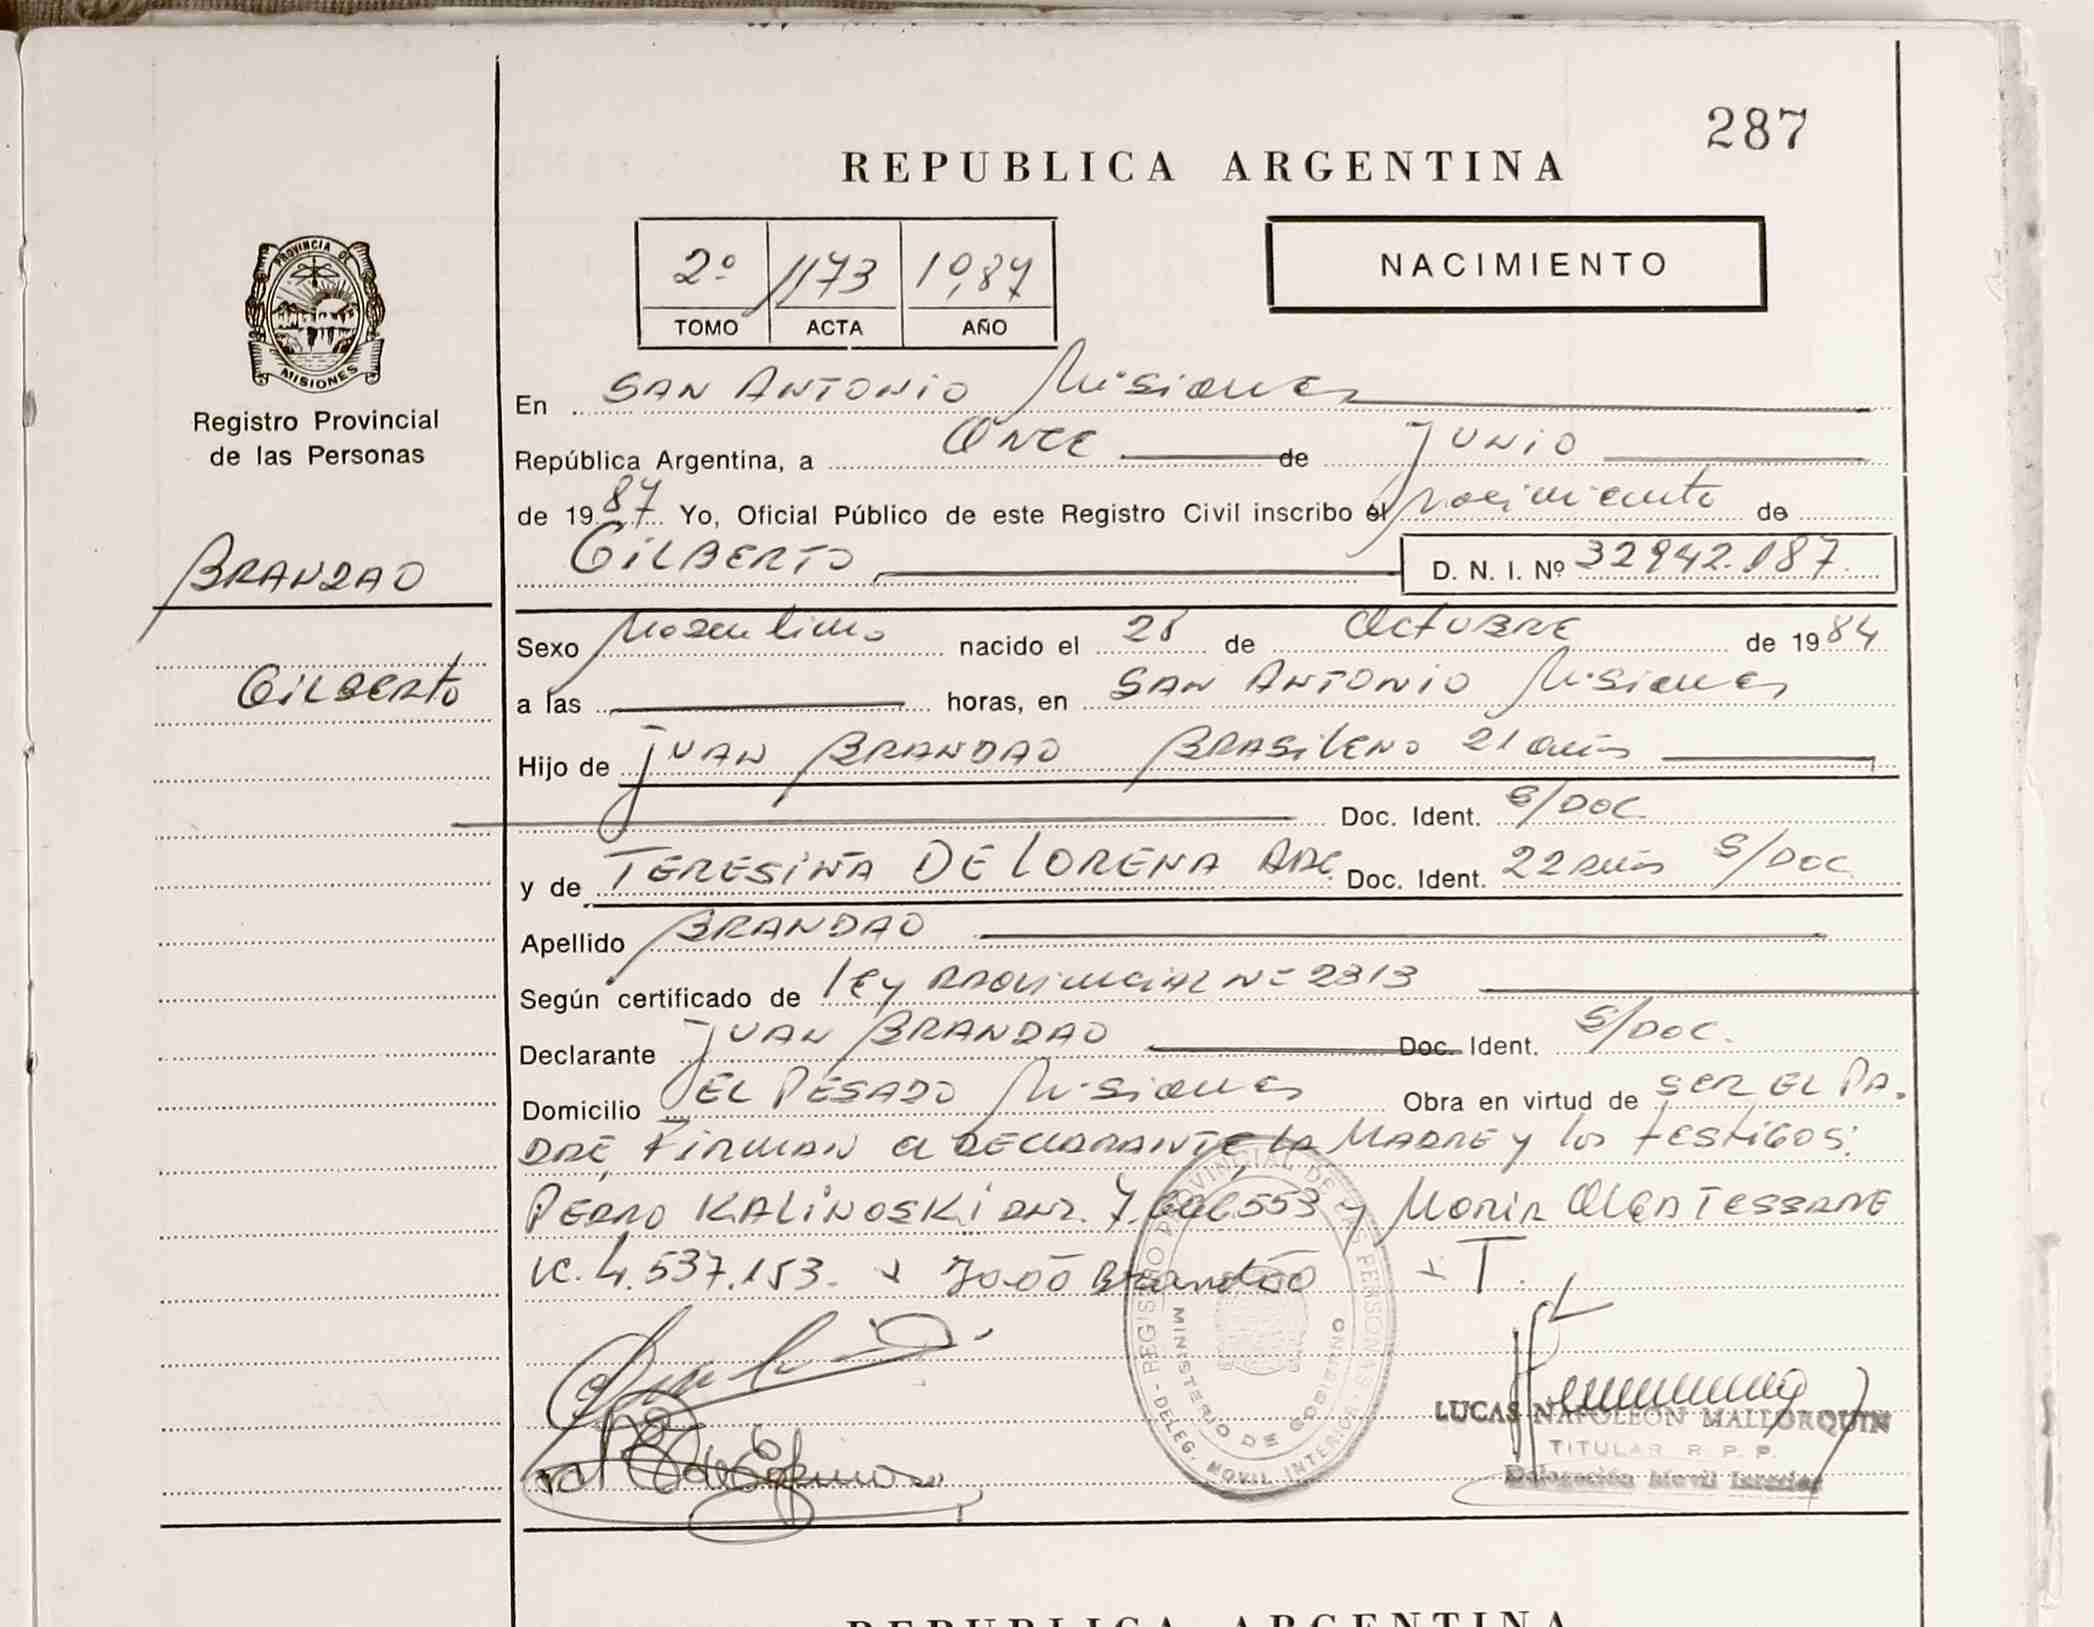 287
REPUBLICA ARGENTINA
2º 1173 1987
TOMO ACTA AÑO
NACIMIENTO
PROVINCIA DE
MISIONES
Registro Provincial
de las Personas
BRANDAO
Gilberto
En SAN ANTONIO Misiones
República Argentina, a ONCE de JUNIO
de 1987 Yo, Oficial Público de este Registro Civil inscribo el nacimiento de
GILBERTO D. N. I. Nº 32942.187.
Sexo Masculino nacido el 28 de Octubre de 1984
a las horas, en SAN ANTONIO Misiones
Hijo de JUAN BRANDAO BRASILENO 21 años
Doc. Ident. S/DOC.
y de TERESIÑA DE LORENA Doc. Ident. 22 años S/DOC
Apellido BRANDAO
Según certificado de ley provincial Nº 2313
Declarante JUAN BRANDAO Doc. Ident. S/DOC.
Domicilio EL PESADO Misiones Obra en virtud de SER EL PA.
DRE, FIRMAN el DECLARANTE, la MADRE y los testigos:
PEDRO KALINOSKI DNI. 553 y MARIA OLGA
4.537.153. x João Brandão + T.
REGISTRO PROVINCIAL DE LAS PERSONAS
MINISTERIO DE GOBIERNO
DELEG. MOVIL INTERIOR
LUCAS NAPOLEON MALLORQUIN
TITULAR R. P. P.
Delegación Movil
REPUBLICA ARGENTINA